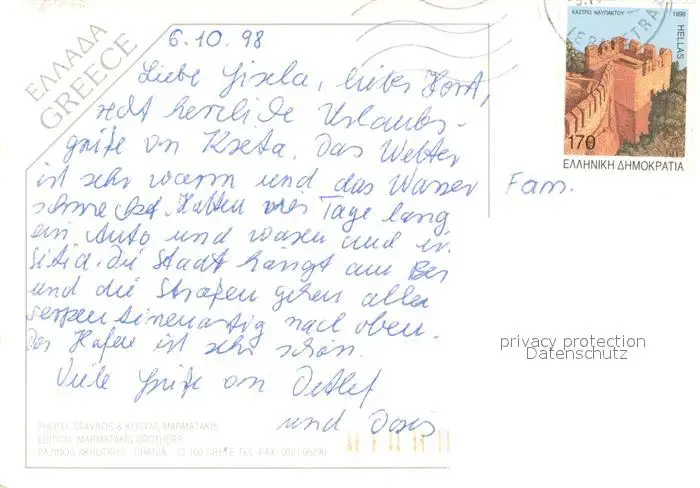 ΕΛΛΑΔΑ
GREECE
6.10.98
Liebe Gisela, lieber Horst,
recht herzliche Urlaubs-
grüße von Kreta. Das Wetter
ist sehr warm und das Wasser
Hatten vier Tage lang
ein Auto und waren auch in
Sitia. Die Stadt hängt am Ber
und die Straßen gehen alle
serpentinenartig nach oben.
Der Hafen ist sehr schön.
Viele Grüße von Detlef
und Doris
Fam.
ΚΑΣΤΡΟ ΝΑΥΠΑΚΤΟΥ 1998
HELLAS
170
ΕΛΛΗΝΙΚΗ ΔΗΜΟΚΡΑΤΙΑ
privacy protection
Datenschutz
PHOTO: STAVROS & KOSTAS MARMATAKIS
EDITION: MARMATAKIS BROTHERS
PAZINOS AKROTIRIO - CHANIA, 73 100 CRETE TEL-FAX: 0821 66290